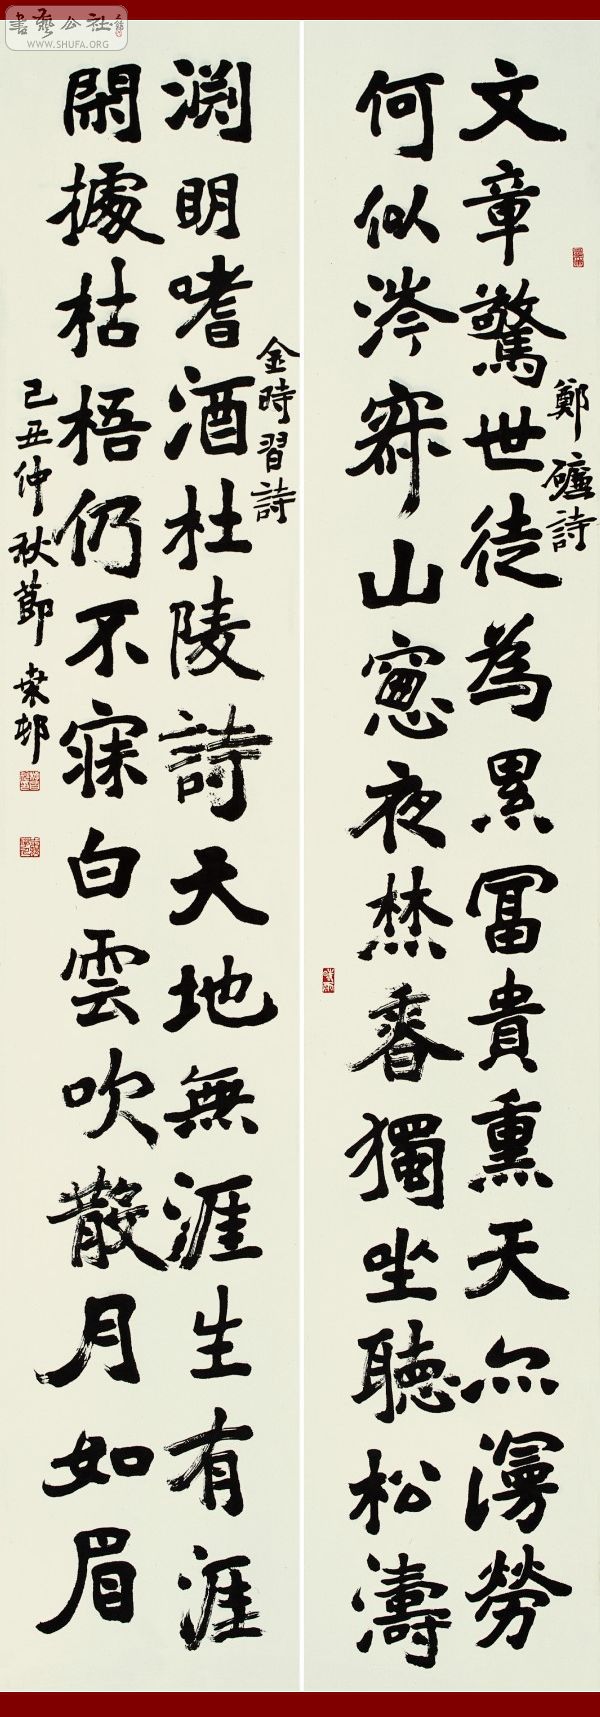 書藝公社
WWW.SHUFA.ORG
文章驚世徒為累冨貴熏天亦漫勞
何似涔寂山窓夜焚香獨坐聽松濤
鄭詩
淵明嗜酒杜陵詩天地無涯生有涯
閑據枯梧仍不寐白雲吹散月如眉
金時習詩
己丑仲秋節邨